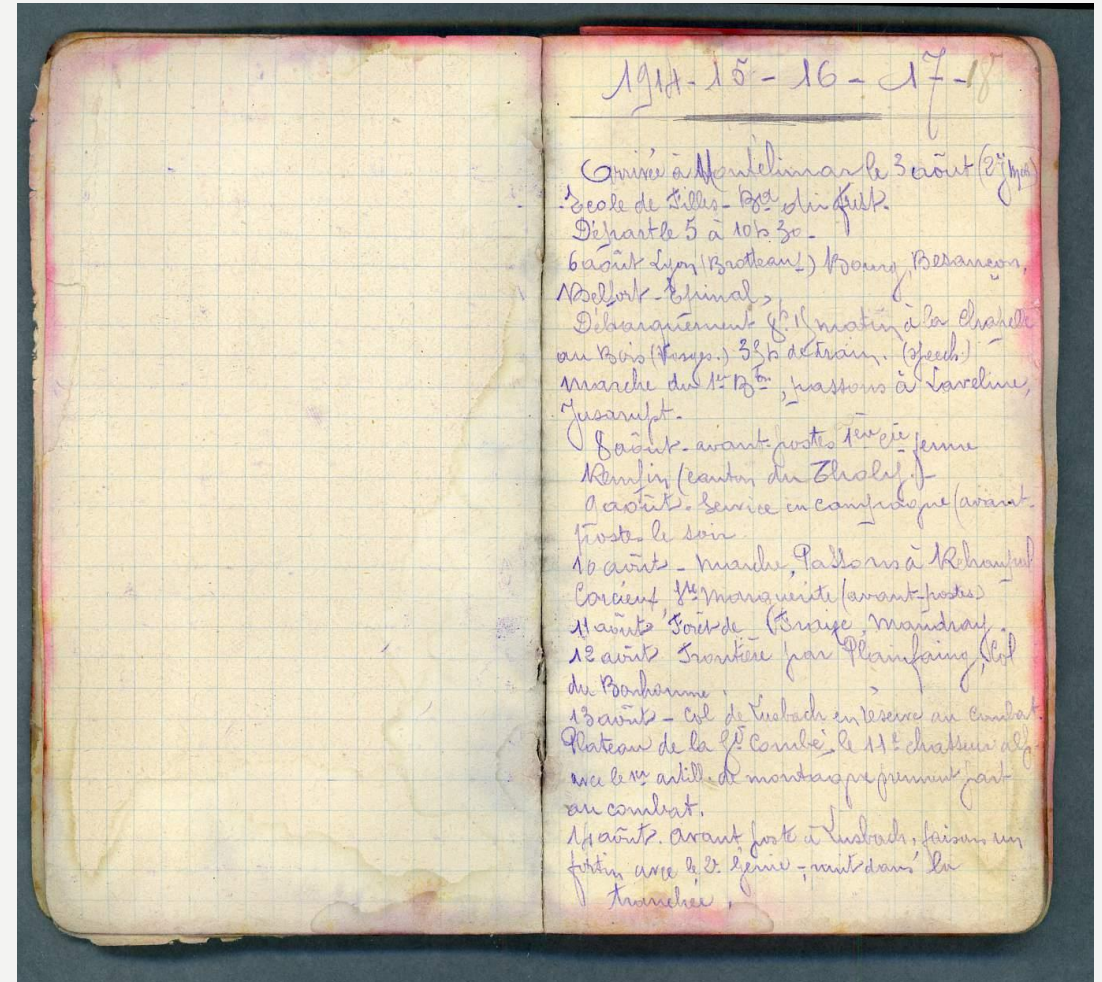 1914 - 15 - 16 - 17 - 18
Arrivée à Montélimar le 3 août (2e j Mob)
École de Filles - Bd du
Départ le 5 à 10h 30 -
6 août Lyon (Brotteaux) Bourg, Besançon,
Belfort - Epinal,
Débarquement matin à la Chapelle
au Bois (Vosges.) 33h de train. (speech)
Marche du 1er Btn, passons à Laveline,
Jusarupt.
8 août - avant-postes 1ère Cie ferme
(canton du Tholy.) -
9 août - Service en campagne (avant-
postes le soir
10 août - Marche, Passons à Rehaupal
Corcieux, Ste Marguerite (avant-postes)
11 août Forêt de (Fraize, Mandray.
12 août Frontière par Plainfaing, Col
du Bonhomme.
13 août - Col de Lusbach en réserve au combat.
Plateau de la Gde Combe, le 11e chasseur alp
avec le 1er artill. de montagne prennent part
au combat.
14 août. Avant poste à Lusbach, faisons un
fortin avec le 2e Génie - nuit dans la
tranchée.